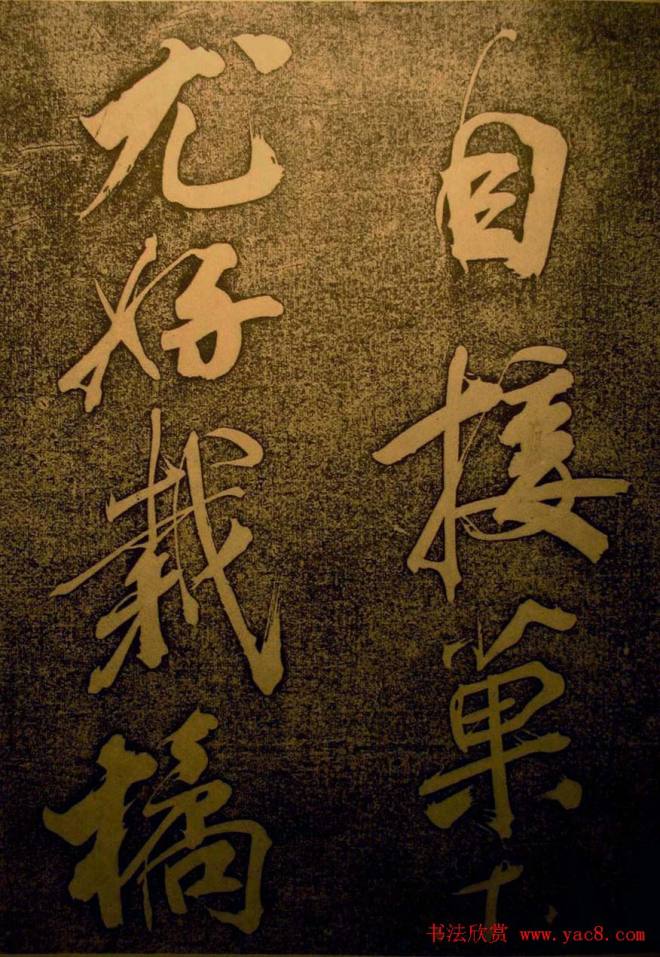 自接菓
尤好栽橘
书法欣赏 www.yac8.com